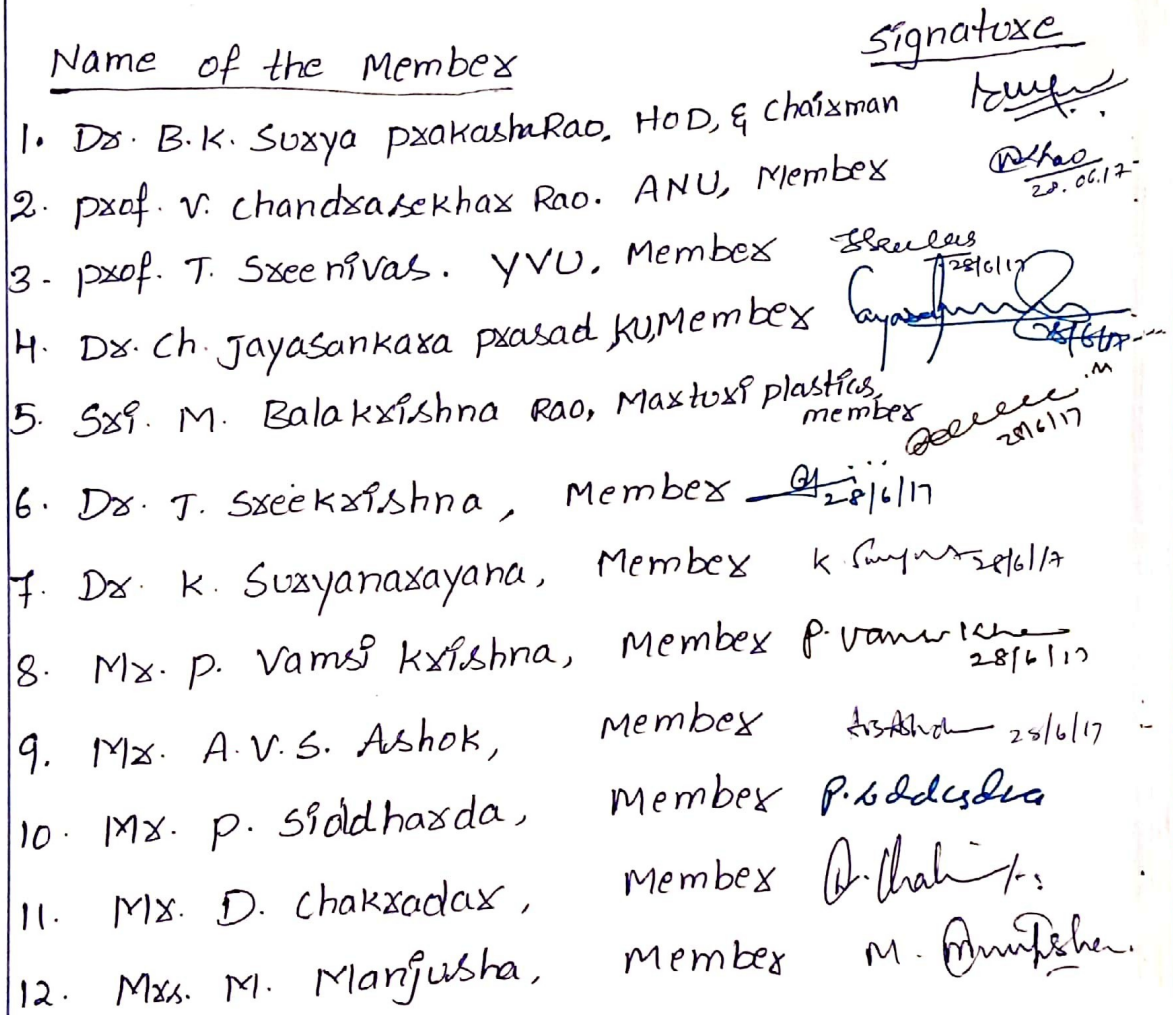 Name of the Member Signature
1. Dr. B.K. Surya prakasha Rao, HOD, & Chairman
2. prof. V. Chandrasekhar Rao. ANU, Member 28.06.17
3- prof. T. Sreenivas. YVU, Member 28/6/17
4. Dr. Ch. Jayasankara prasad KU, Member 28/6/17
5. Sri. M. Balakrishna Rao, Marturi plastics, member 28/6/17
6. Dr. T. Sreekrishna, Member 28/6/17
7. Dr. K. Suryanarayana, Member K. 28/6/17
8. Mr. p. Vamsi krishna, Member P. Vamsi 28/6/17
9. Mr. A.V.S. Ashok, Member 28/6/17
10. Mr. p. Siddharda, Member P.
11. Mr. D. Chakradar, Member D.
12. Mrs. M. Manjusha, Member M.